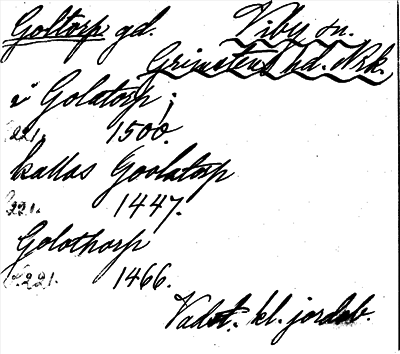 Goltorp gd. Viby sn.
Grimstens hd. Nrk.
i Golatorp;
221. 1500.
kallas Goolatorp
221. 1447.
Golothorp
221. 1466.
Vadst. kl. jordab.